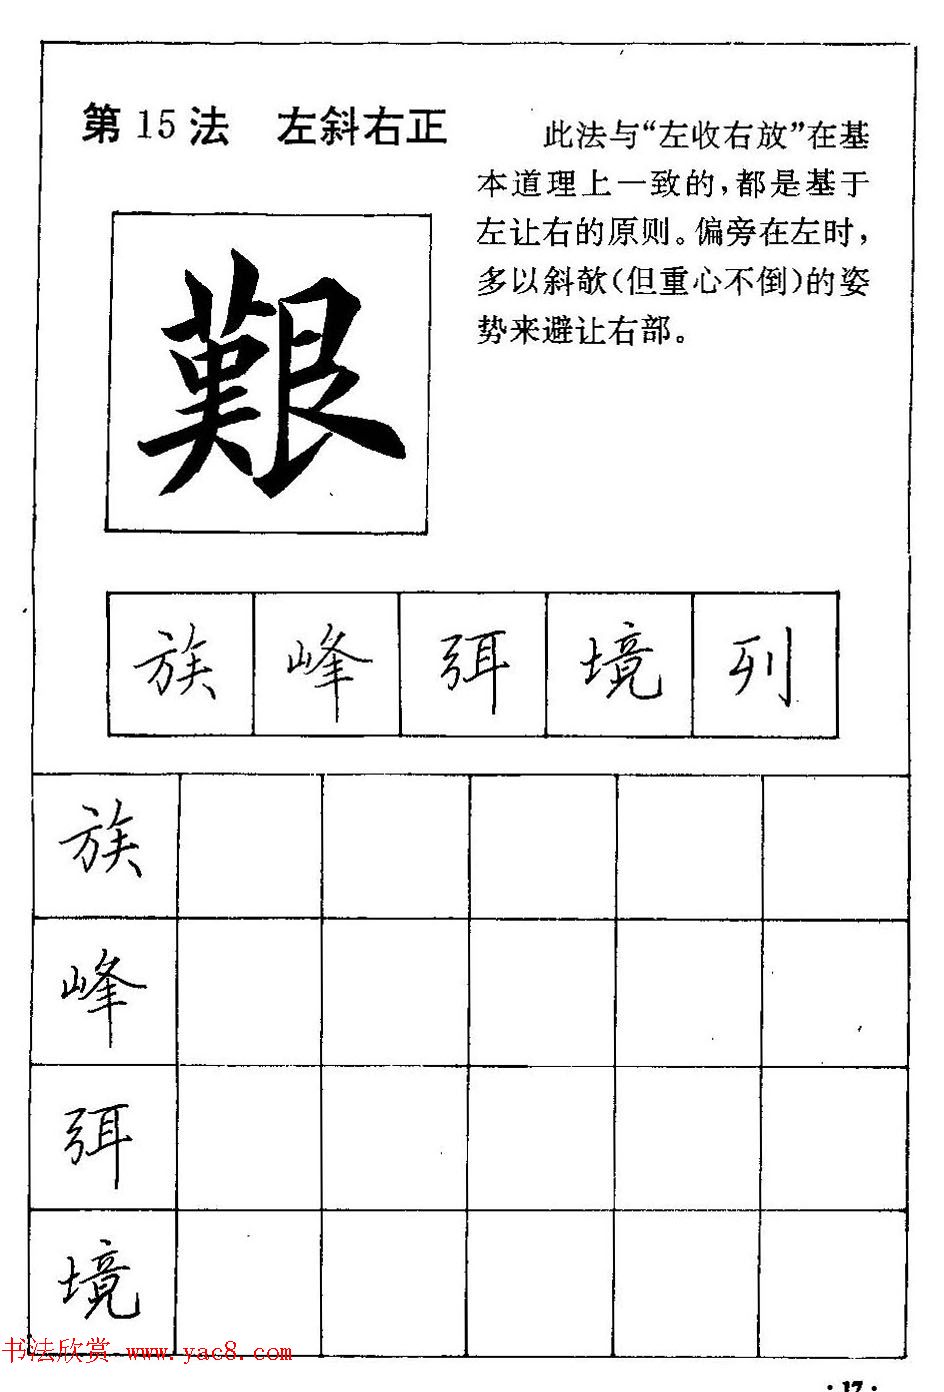 第15法 左斜右正
此法与“左收右放”在基
本道理上一致的，都是基于
左让右的原则。偏旁在左时，
多以斜欹（但重心不倒）的姿
势来避让右部。
艱
族 峰 弭 境 列
族
峰
弭
境
书法欣赏 www.yac8.com
·17·